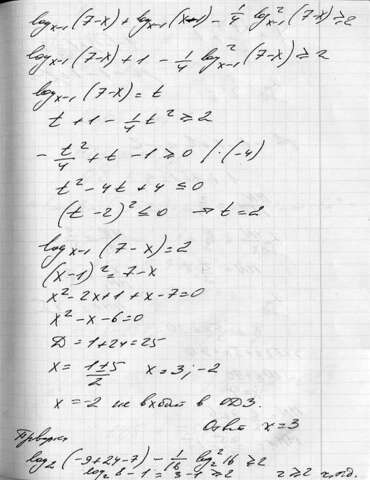 log_{x-1}(7-x) + log_{x-1}(x-1) - 1/4 log²_{x-1}(7-x) ≥ 2
log_{x-1}(7-x) + 1 - 1/4 log²_{x-1}(7-x) ≥ 2
log_{x-1}(7-x) = t
t + 1 - 1/4 t² ≥ 2
- t²/4 + t - 1 ≥ 0 /·(-4)
t² - 4t + 4 ≤ 0
(t - 2)² ≤ 0 → t = 2
log_{x-1}(7-x) = 2
(x-1)² = 7-x
x² - 2x + 1 + x - 7 = 0
x² - x - 6 = 0
D = 1 + 24 = 25
x = (1±5)/2 x = 3; -2
x = -2 не входит в ОДЗ.
Ответ x = 3
Проверка
log₂(-9+24-7) - 1/16 log₂² 16 ≥ 2
log₂ 8 - 1 = 3 - 1 ≥ 2 2 ≥ 2 ч.т.д.